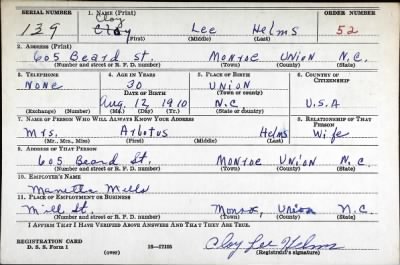 SERIAL NUMBER 1. NAME (Print) ORDER NUMBER
Cloy
139 Cloy Lee Helms 52
(First) (Middle) (Last)
2. ADDRESS (Print)
605 Beard St. Monroe Union N.C.
(Number and street or R. F. D. number) (Town) (County) (State)
3. TELEPHONE 4. AGE IN YEARS 5. PLACE OF BIRTH 6. COUNTRY OF CITIZENSHIP
None 30 Union
DATE OF BIRTH (Town or county)
Aug. 12, 1910 N.C U.S.A
(Exchange) (Number) (Mo.) (Day) (Yr.) (State or country)
7. NAME OF PERSON WHO WILL ALWAYS KNOW YOUR ADDRESS 8. RELATIONSHIP OF THAT PERSON
Mrs. Arbotus Helms Wife
(Mr., Mrs., Miss) (First) (Middle) (Last)
9. ADDRESS OF THAT PERSON
605 Beard St. Monroe Union N.C.
(Number and street or R. F. D. number) (Town) (County) (State)
10. EMPLOYER'S NAME
Manetta Mills
11. PLACE OF EMPLOYMENT OR BUSINESS
Mill St. Monroe, Union N.C.
(Number and street or R. F. D. number) (Town) (County) (State)
I AFFIRM THAT I HAVE VERIFIED ABOVE ANSWERS AND THAT THEY ARE TRUE.
REGISTRATION CARD
D. S. S. Form 1 16—17105 Cloy Lee Helms
(over) (Registrant's signature)